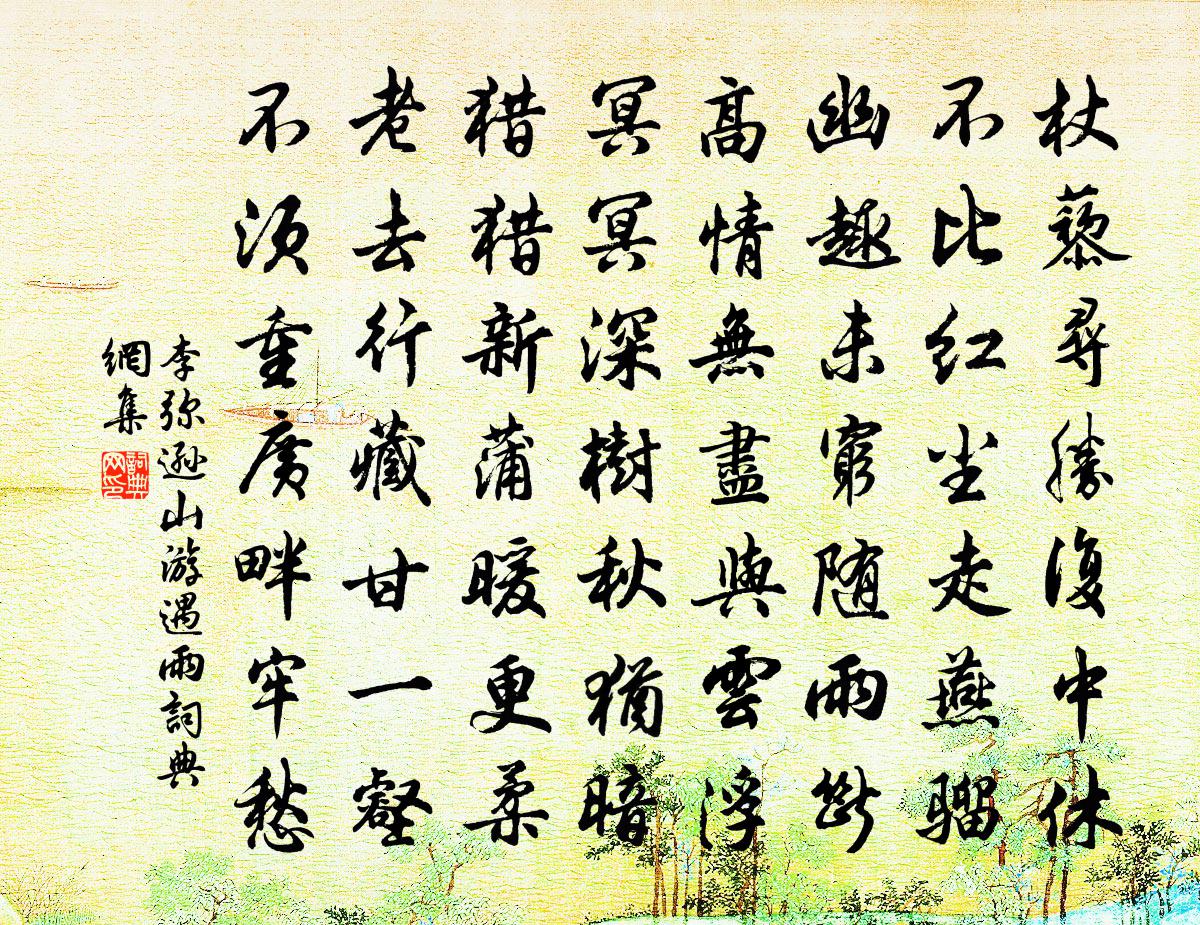 杖藜尋勝復中休
不比红尘走燕騮
幽趣未窮随雨斷
高情無盡與雲浮
冥冥深樹秋猶暗
猎猎新蒲暖更柔
老去行藏甘一壑
不须重广畔牢愁
李弥逊山游遇雨詞典
網集
詞典网印